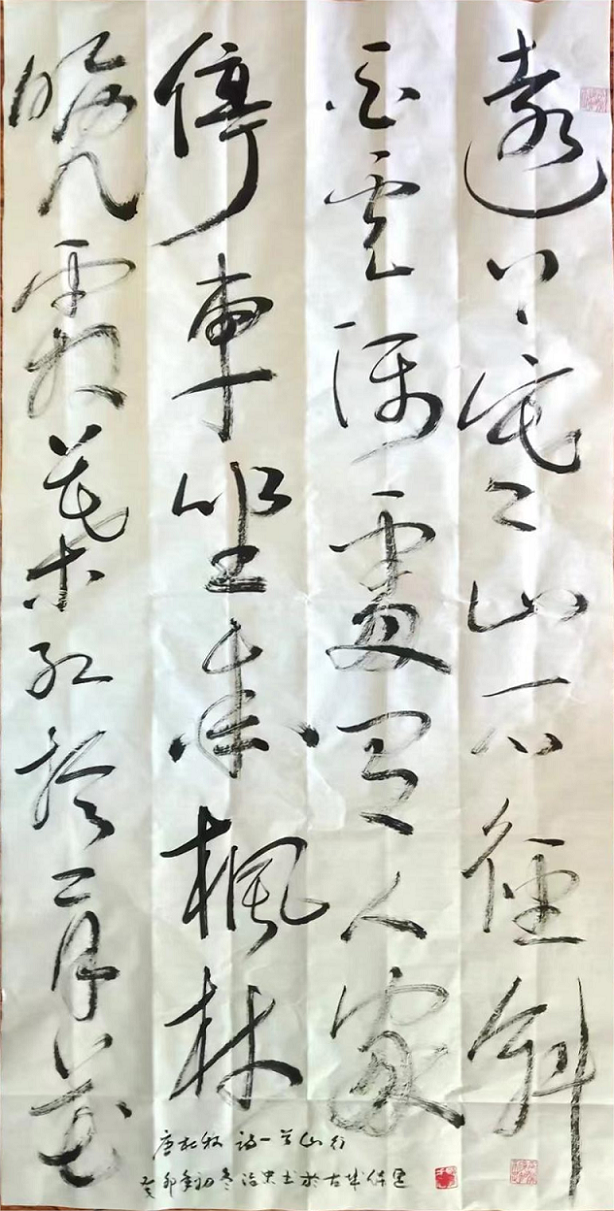 遠上寒山石徑斜
白雲深處有人家
停車坐愛楓林
晚霜葉紅於二月花
唐杜牧詩一首山行
癸卯年初冬於古城